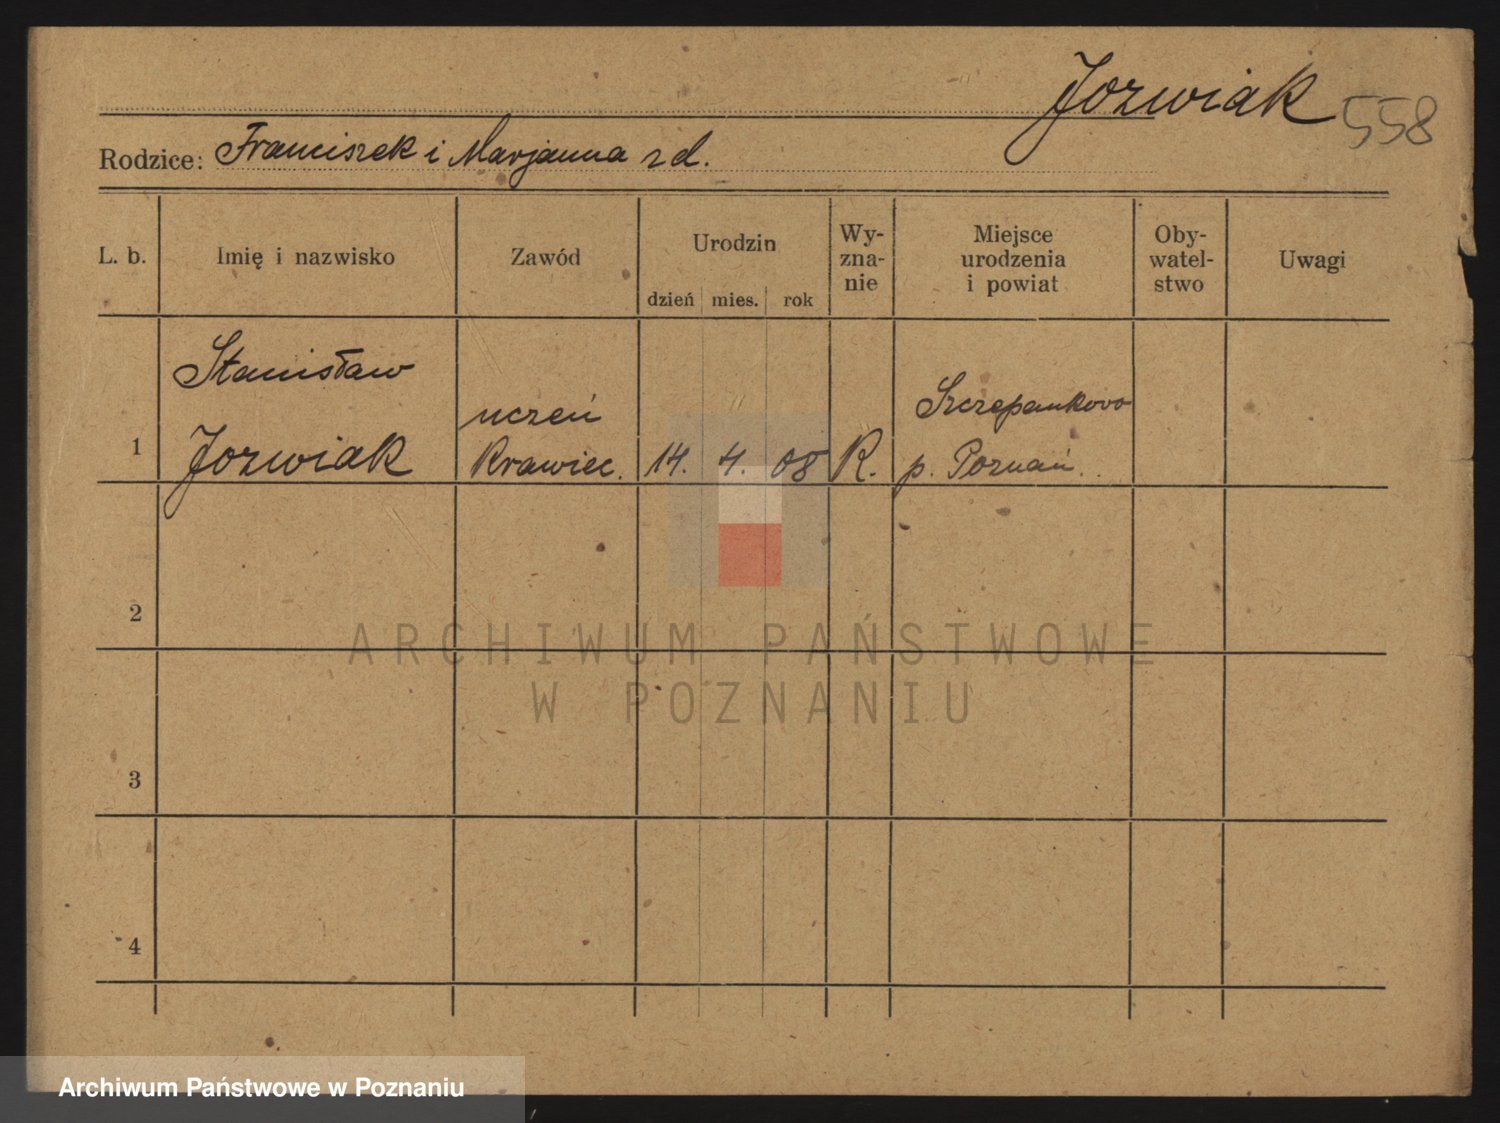 Jozwiak 558
Rodzice: Franciszek i Marjanna z d.
L. b.
Imię i nazwisko
Zawód
Urodzin
dzień mies. rok
Wy-
zna-
nie
Miejsce
urodzenia
i powiat
Oby-
watel-
stwo
Uwagi
1
Stanisław
Jozwiak
uczeń
Krawiec.
14. 4. 08
R.
Szczepankowo
p. Poznań.
2
3
4
ARCHIWUM PAŃSTWOWE
W POZNANIU
Archiwum Państwowe w Poznaniu